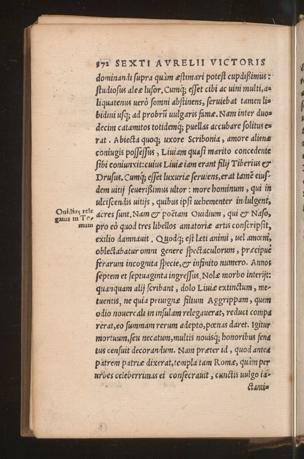 372 SEXTI AVRELII VICTORIS
dominandi supra quàm æstimari potest cupidißimus:
studiosus aleæ lusor. Cumq; esset cibi ac uini multi, a-
liquatenus uerò somni abstinens, seruiebat tamen li-
bidini usq; ad probrũ uulgaris famæ. Nam inter duo-
decim catamitos totidemq; puellas accubare solitus e-
rat. Abiecta quoq; uxore Scribonia, amore alienæ
coniugis possessus, Liuiam quasi marito concedente
sibi coniunxit: cuius Liuiæ iam erant filij Tiberius &
Drusus. Cumq; esset luxuriæ seruiens, erat tamẽ eius-
dem uitij seuerißimus ultor: more hominum, qui in
ulciscendis uitijs, quibus ipsi uehementer indulgent,
acres sunt. Nam & poëtam Ouidium, qui & Naso,
pro eò quod tres libellos amatoriæ artis conscripsit,
exilio damnauit. Quodq; est læti animi, uel amœni,
oblectabatur omni genere spectaculorum, præcipuè
ferarum incognita specie, & infinito numero. Annos
septem et septuaginta ingressus, Nolæ morbo interijt:
quanquam alij scribant, dolo Liuiæ extinctum, me-
tuentis, ne quia priuignæ filium Aggrippam, quem
odio nouercali in insulam relegauerat, reduci compe
rerat, eo summam rerum adepto, pœnas daret. Igitur
mortuum, seu necatum, multis nouisq; honoribus sena
tus censuit decorandum. Nam præter id, quod antea
patrem patriæ dixerat, templa tam Romæ, quàm per
urbes celeberrimas ei consecrauit, cunctis uulgo ia-
ctanti-
Ouidius rele
gatus in To-
mum